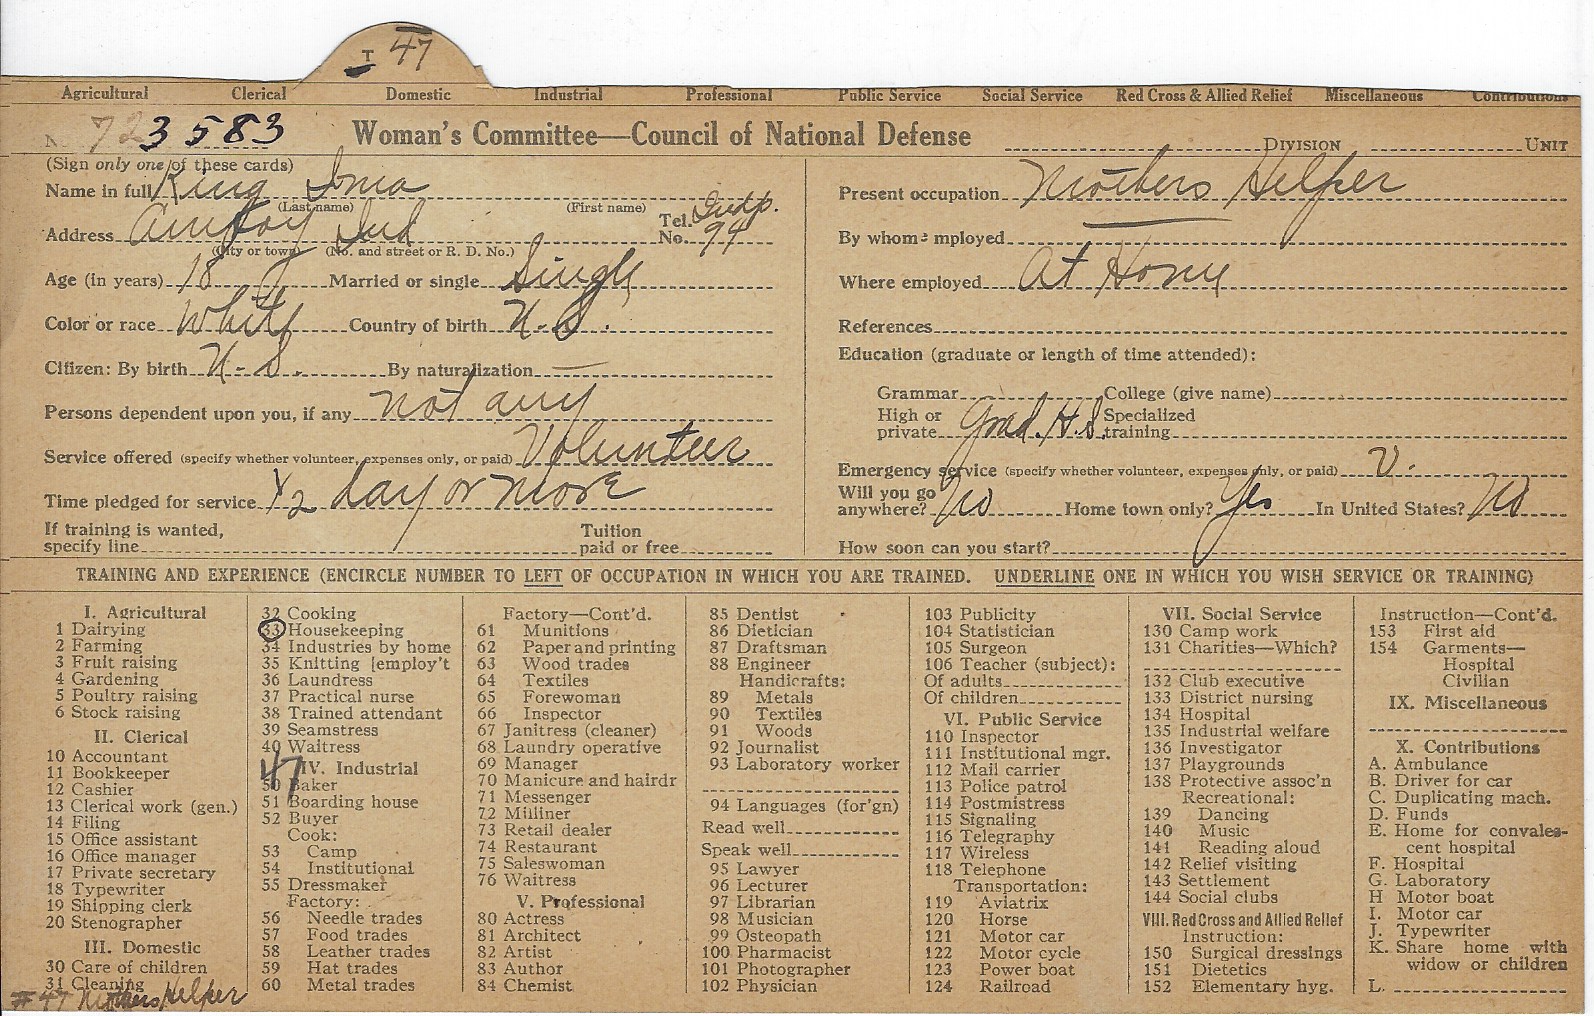 T 47
Agricultural Clerical Domestic Industrial Professional Public Service Social Service Red Cross & Allied Relief Miscellaneous Contributions
N 723583 Woman's Committee—Council of National Defense DIVISION UNIT
(Sign only one of these cards)
Name in full King Inia
(Last name) (First name)
Address Amboy Ind Tel. No. Indp. 94
(City or town) (No. and street or R. D. No.)
Age (in years) 18 Married or single Single
Color or race White Country of birth U.S.
Citizen: By birth U.S. By naturalization —
Persons dependent upon you, if any not any
Service offered (specify whether volunteer, expenses only, or paid) Volunteer
Time pledged for service 1/2 day or more
If training is wanted, Tuition
specify line paid or free
Present occupation Mothers Helper
By whom employed
Where employed At Home
References
Education (graduate or length of time attended):
Grammar College (give name)
High or private Grad. H.S. Specialized training
Emergency service (specify whether volunteer, expenses only, or paid) V.
Will you go anywhere? No Home town only? Yes In United States? No
How soon can you start?
TRAINING AND EXPERIENCE (ENCIRCLE NUMBER TO LEFT OF OCCUPATION IN WHICH YOU ARE TRAINED. UNDERLINE ONE IN WHICH YOU WISH SERVICE OR TRAINING)
I. Agricultural
1 Dairying
2 Farming
3 Fruit raising
4 Gardening
5 Poultry raising
6 Stock raising
II. Clerical
10 Accountant
11 Bookkeeper
12 Cashier
13 Clerical work (gen.)
14 Filing
15 Office assistant
16 Office manager
17 Private secretary
18 Typewriter
19 Shipping clerk
20 Stenographer
III. Domestic
30 Care of children
31 Cleaning
#47 Mothers Helper
32 Cooking
33 Housekeeping
34 Industries by home
35 Knitting [employ't
36 Laundress
37 Practical nurse
38 Trained attendant
39 Seamstress
40 Waitress
47
IV. Industrial
50 Baker
51 Boarding house
52 Buyer
Cook:
53 Camp
54 Institutional
55 Dressmaker
Factory:
56 Needle trades
57 Food trades
58 Leather trades
59 Hat trades
60 Metal trades
Factory—Cont'd.
61 Munitions
62 Paper and printing
63 Wood trades
64 Textiles
65 Forewoman
66 Inspector
67 Janitress (cleaner)
68 Laundry operative
69 Manager
70 Manicure and hairdr
71 Messenger
72 Milliner
73 Retail dealer
74 Restaurant
75 Saleswoman
76 Waitress
V. Professional
80 Actress
81 Architect
82 Artist
83 Author
84 Chemist
85 Dentist
86 Dietician
87 Draftsman
88 Engineer
Handicrafts:
89 Metals
90 Textiles
91 Woods
92 Journalist
93 Laboratory worker
94 Languages (for'gn)
Read well
Speak well
95 Lawyer
96 Lecturer
97 Librarian
98 Musician
99 Osteopath
100 Pharmacist
101 Photographer
102 Physician
103 Publicity
104 Statistician
105 Surgeon
106 Teacher (subject):
Of adults
Of children
VI. Public Service
110 Inspector
111 Institutional mgr.
112 Mail carrier
113 Police patrol
114 Postmistress
115 Signaling
116 Telegraphy
117 Wireless
118 Telephone
Transportation:
119 Aviatrix
120 Horse
121 Motor car
122 Motor cycle
123 Power boat
124 Railroad
VII. Social Service
130 Camp work
131 Charities—Which?
132 Club executive
133 District nursing
134 Hospital
135 Industrial welfare
136 Investigator
137 Playgrounds
138 Protective assoc'n
Recreational:
139 Dancing
140 Music
141 Reading aloud
142 Relief visiting
143 Settlement
144 Social clubs
VIII. Red Cross and Allied Relief
Instruction:
150 Surgical dressings
151 Dietetics
152 Elementary hyg.
Instruction—Cont'd.
153 First aid
154 Garments—
Hospital
Civilian
IX. Miscellaneous
X. Contributions
A. Ambulance
B. Driver for car
C. Duplicating mach.
D. Funds
E. Home for convales-
cent hospital
F. Hospital
G. Laboratory
H Motor boat
I. Motor car
J. Typewriter
K. Share home with
widow or children
L.